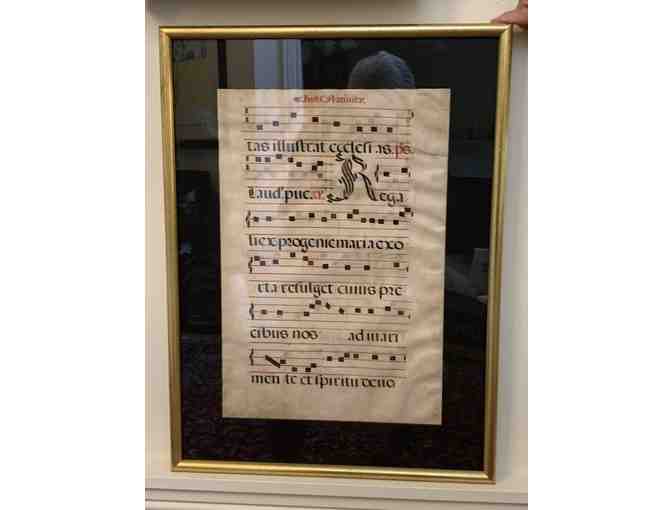 tas illustrat ecclesi as. ps.
Laud. pue. a. Rega
li ex progenie maria exo
rta refulget cuius pre
cibus nos ad iuuari
men te et spiritu deuo